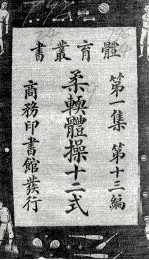 體育叢書
第一集 第十三編
柔軟體操十二式
商務印書館發行